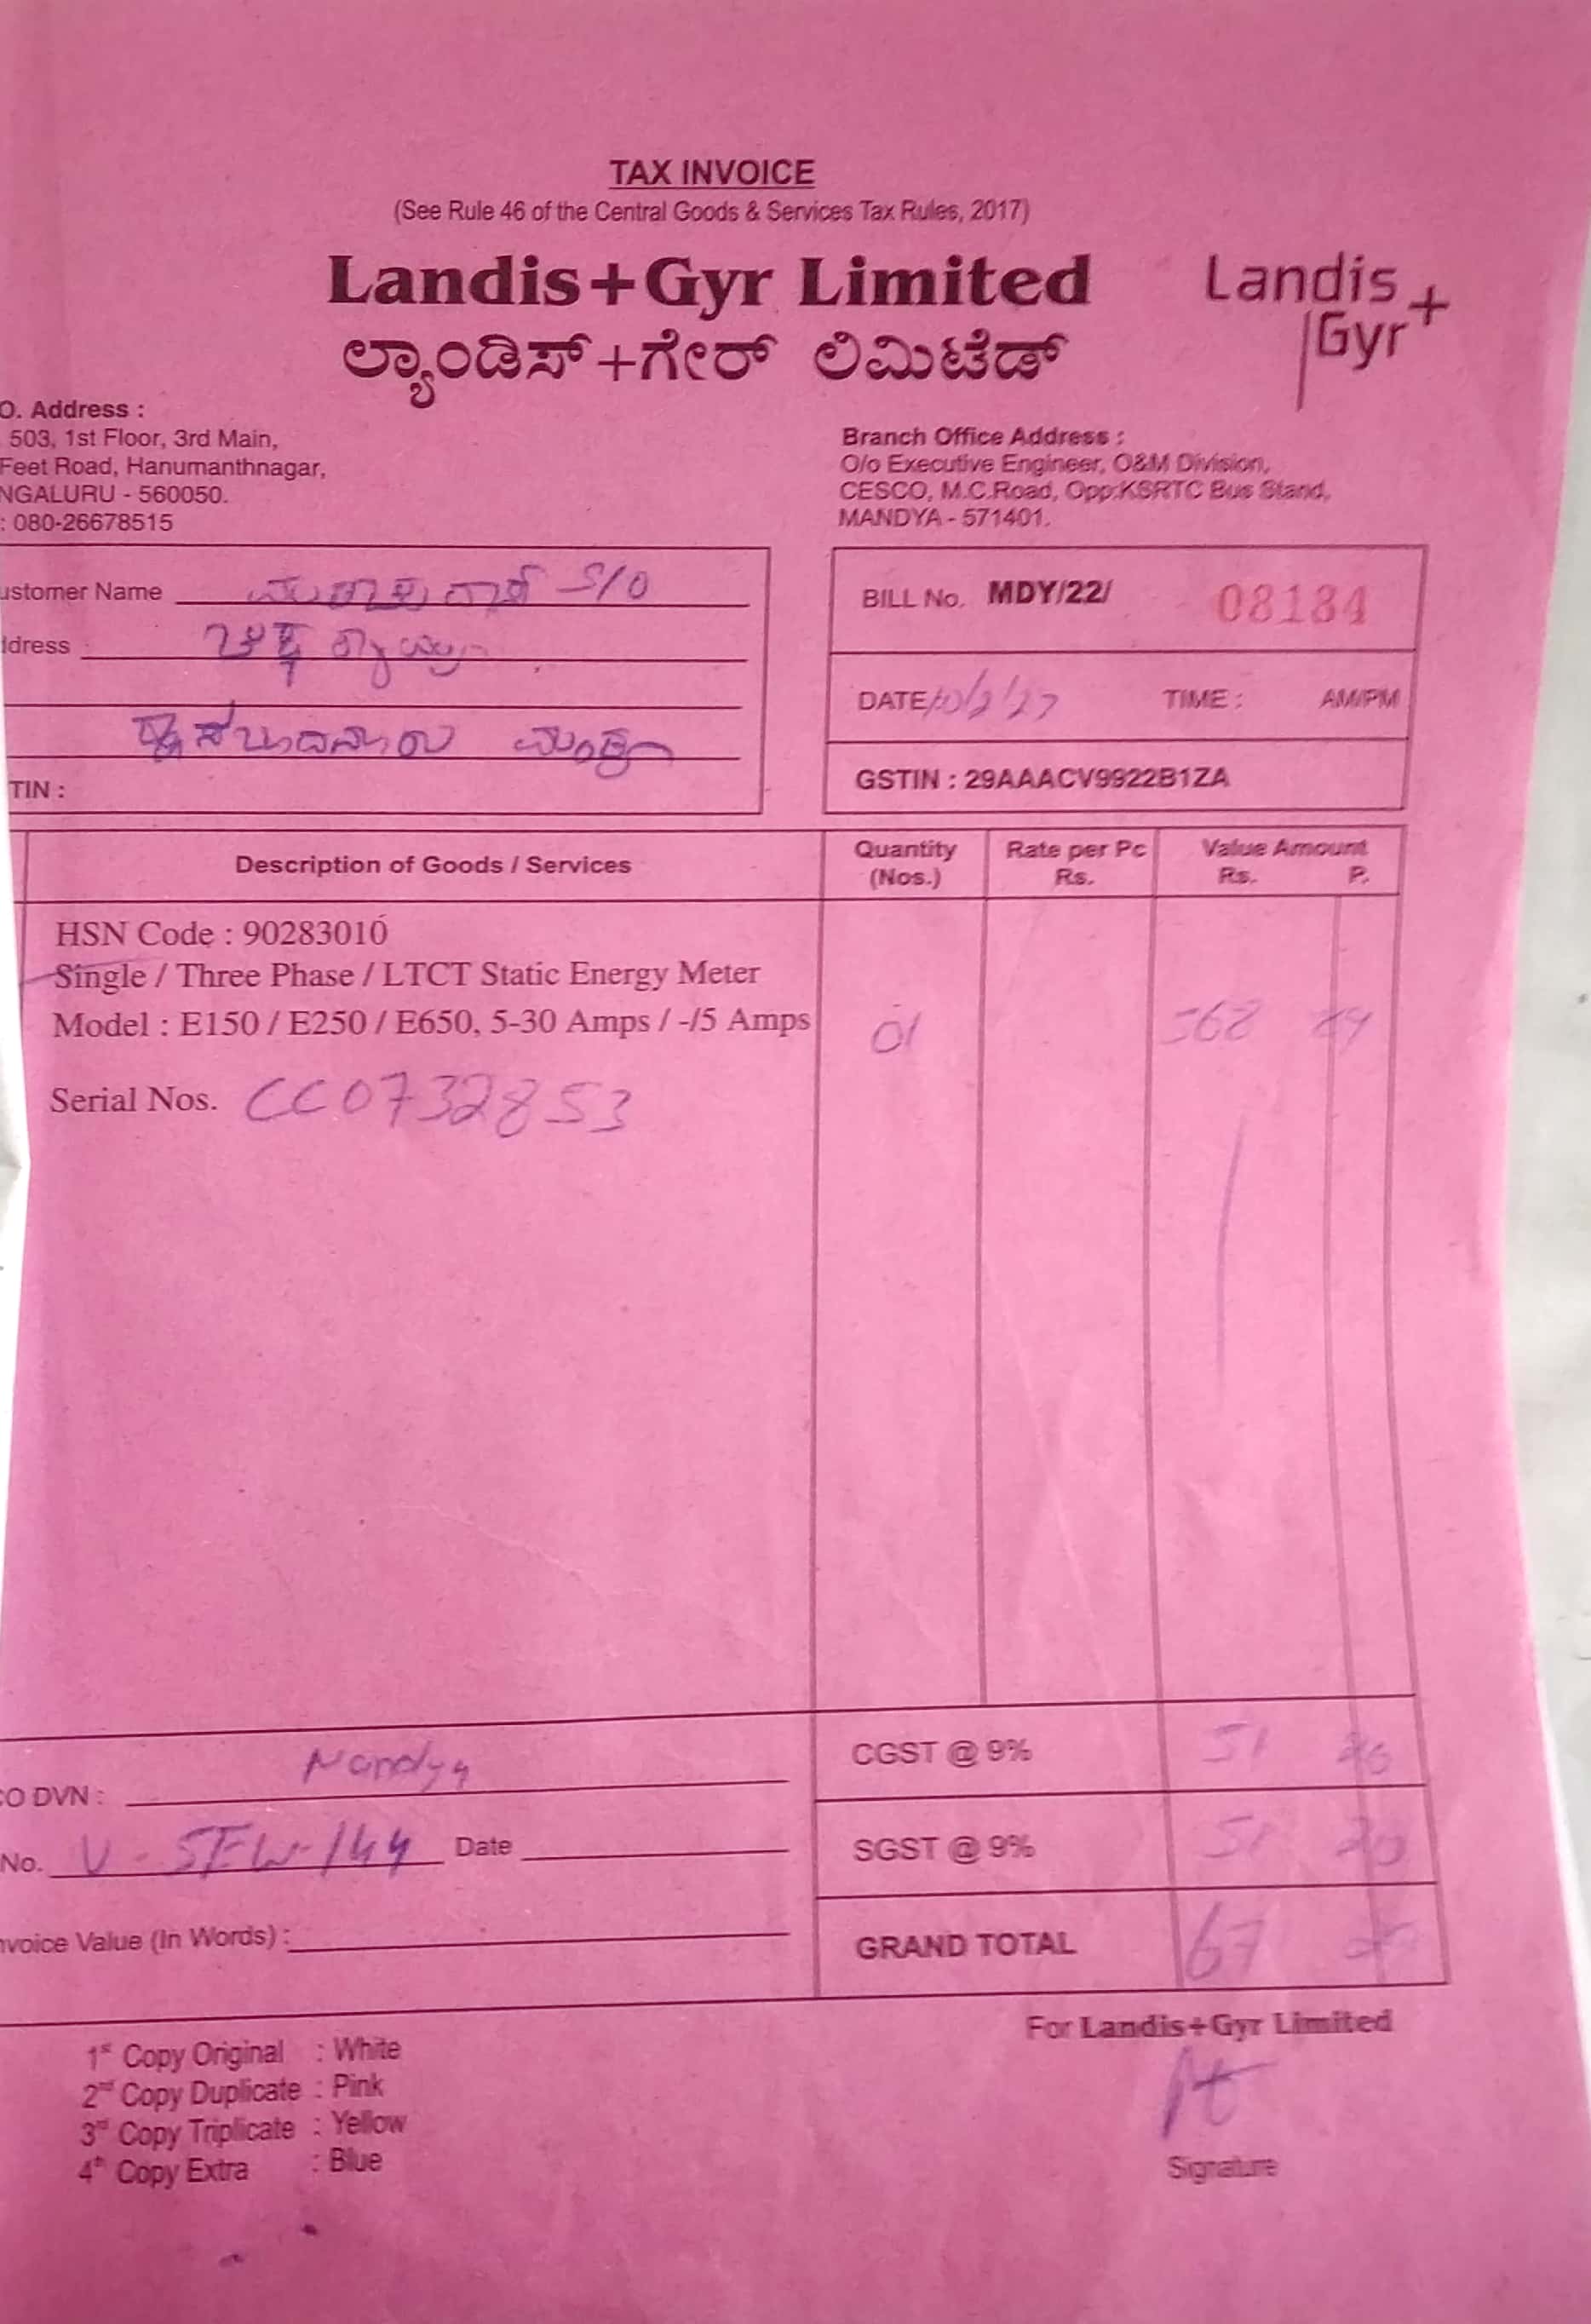 TAX INVOICE
(See Rule 46 of the Central Goods & Services Tax Rules, 2017)
Landis+Gyr Limited
ಲ್ಯಾಂಡಿಸ್+ಗೇರ್ ಲಿಮಿಟೆಡ್
Landis
Gyr+
O. Address :
503, 1st Floor, 3rd Main,
Feet Road, Hanumanthnagar,
NGALURU - 560050.
: 080-26678515
Branch Office Address :
O/o Executive Engineer, O&M Division,
CESCO, M.C.Road, Opp:KSRTC Bus Stand,
MANDYA - 571401.
ustomer Name S/O
ddress
TIN :
BILL No. MDY/22/ 08184
DATE TIME : AM/PM
GSTIN : 29AAACV9922B1ZA
Description of Goods / Services
Quantity (Nos.)
Rate per Pc Rs.
Value Amount Rs. P.
HSN Code : 90283010
Single / Three Phase / LTCT Static Energy Meter
Model : E150 / E250 / E650, 5-30 Amps / -/5 Amps
01
Serial Nos. CC0732853
CO DVN :
No. Date
nvoice Value (In Words) :
CGST @ 9% 51
SGST @ 9% 51
GRAND TOTAL 67
1st Copy Original : White
2nd Copy Duplicate : Pink
3rd Copy Triplicate : Yellow
4th Copy Extra : Blue
For Landis+Gyr Limited
Signature